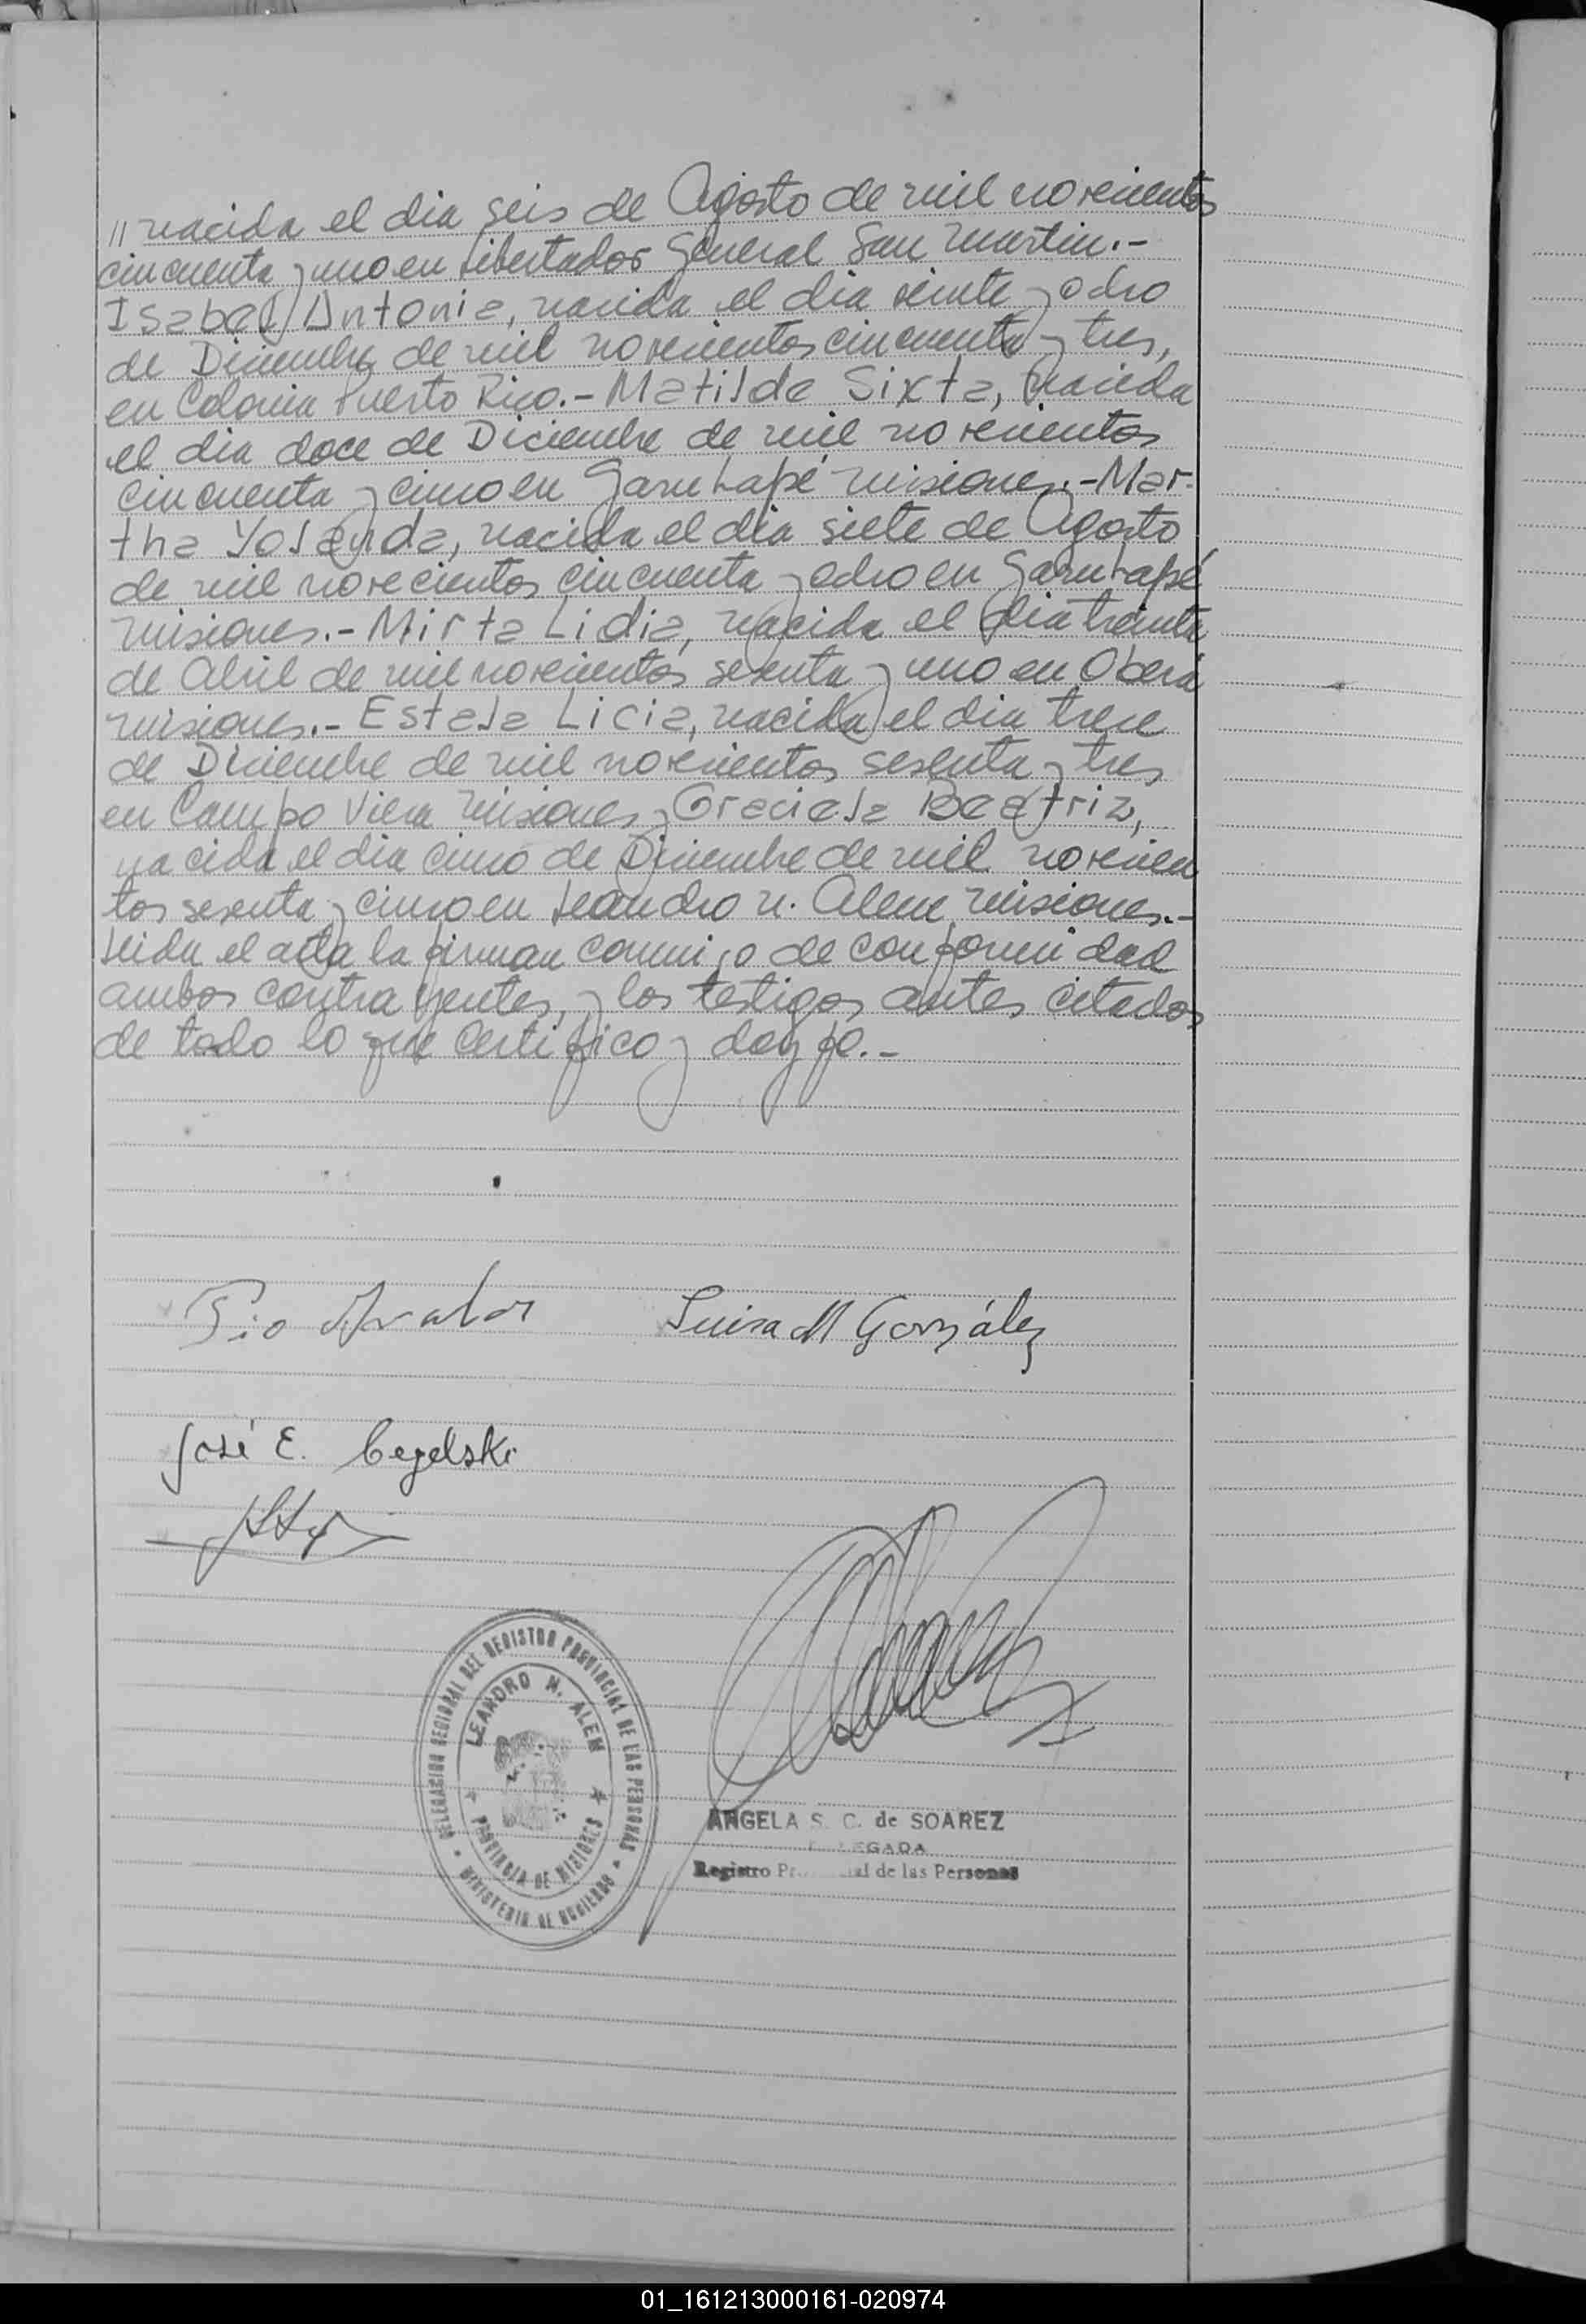 // nacida el dia seis de Agosto de mil novecientos
cincuenta y uno en Libertador General San Martin.-
Isabel Antonia, nacida el dia veinte y ocho
de Diciembre de mil novecientos cincuenta y tres,
en Colonia Puerto Rico.- Matilde Sixta, nacida
el dia doce de Diciembre de mil novecientos
cincuenta y cinco en Garuhapé misiones.- Mar-
tha Yolanda, nacida el dia siete de Agosto
de mil novecientos cincuenta y ocho en Garuhapé
misiones.- Mirta Lidia, nacida el dia treinta
de Abril de mil novecientos sesenta y uno en Oberá
misiones.- Estela Licia, nacida el dia trece
de Diciembre de mil novecientos sesenta y tres
en Campo Viera misiones y Graciela Beatriz,
nacida el dia cinco de Diciembre de mil novecien
tos sesenta y cinco en Leandro N. Alem misiones.-
Leida el acta la firman conmigo de conformidad
ambos contrayentes, y los testigos antes citados
de todo lo que certifico y doy fe.-
Pio Luisa M González
José E. Cegelski
DELEGACION REGIONAL DEL REGISTRO PROVINCIAL DE LAS PERSONAS
LEANDRO N. ALEM
PROVINCIA DE MISIONES
MINISTERIO DE GOBIERNO
ANGELA S. C. de SOAREZ
DELEGADA
Registro Provincial de las Personas
01_161213000161-020974